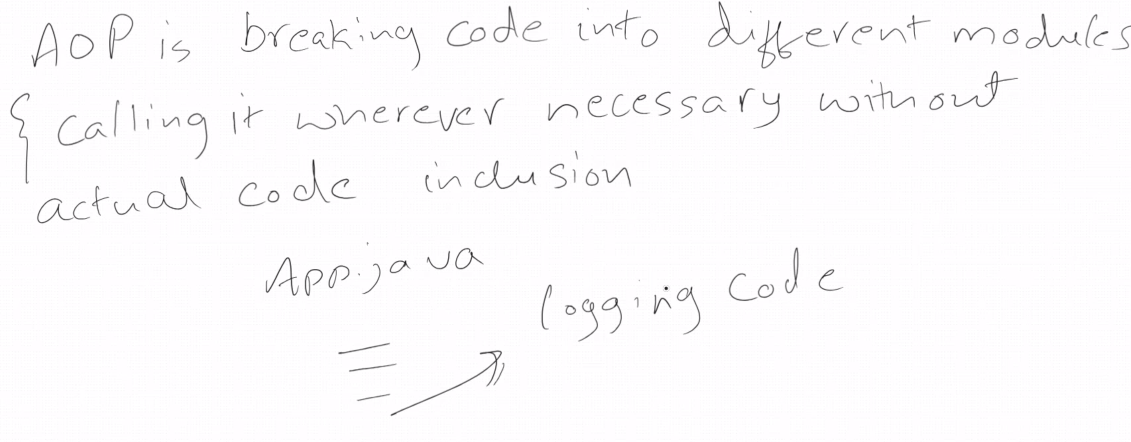 AOP is breaking code into different modules
& calling it wherever necessary without
actual code inclusion
App.java
logging code